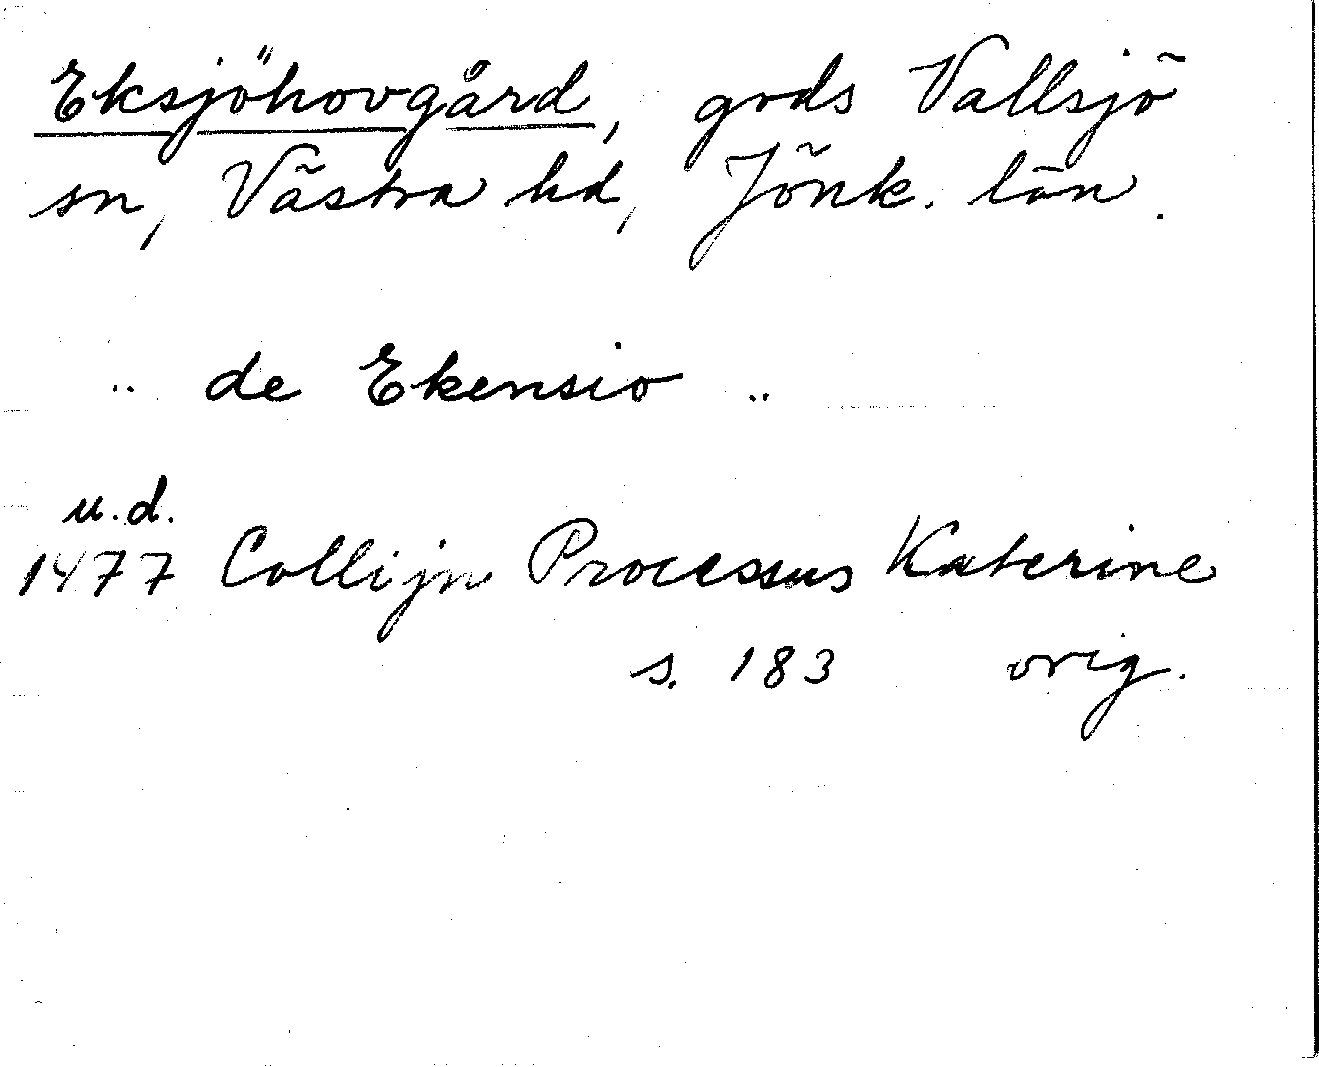 Eksjöhovgård, gods Vallsjö
sn, Västra hd, Jönk. län.
.. de Ekensio ..
u.d.
1477 Collijn Processus Katerine
s. 183 orig.